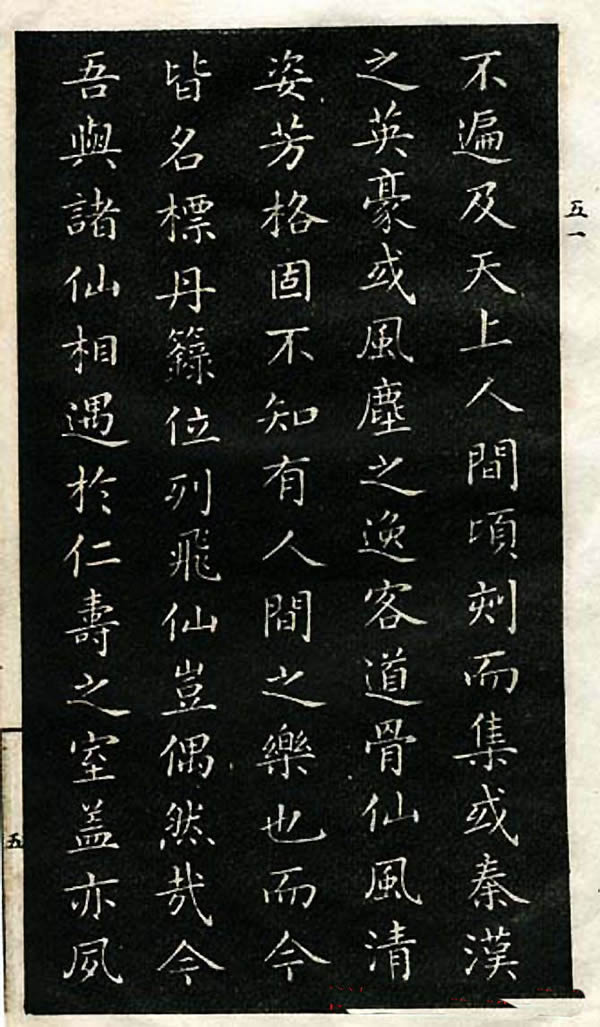 不遍及天上人間頃刻而集或秦漢
之英豪或風塵之逸客道骨仙風清
姿芳格固不知有人間之樂也而今
皆名標丹籙位列飛仙豈偶然哉今
吾與諸仙相遇於仁壽之室盖亦夙
五一
五